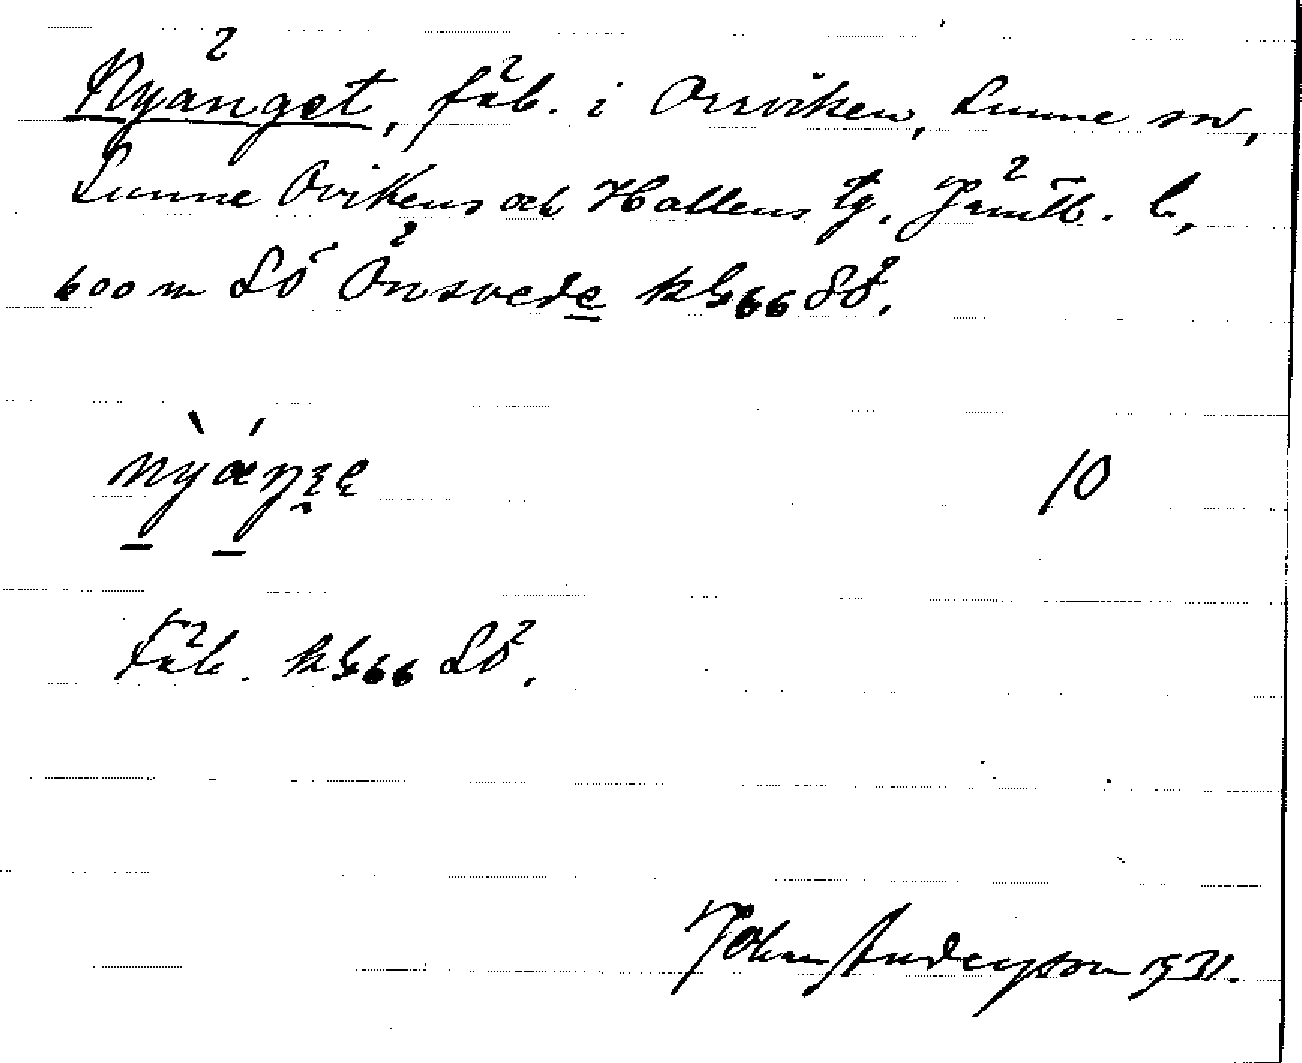 Nyänget, fäb. i Orrviken, Sunne sn,
Sunne Ovikens och Hallens tg. Jämtl. l.,
600 m SÖ Önsvede kbl 66 SÖ.
nỳǽŋ
10
Fäb. kbl 66 SÖ.
John Anderson 1931.